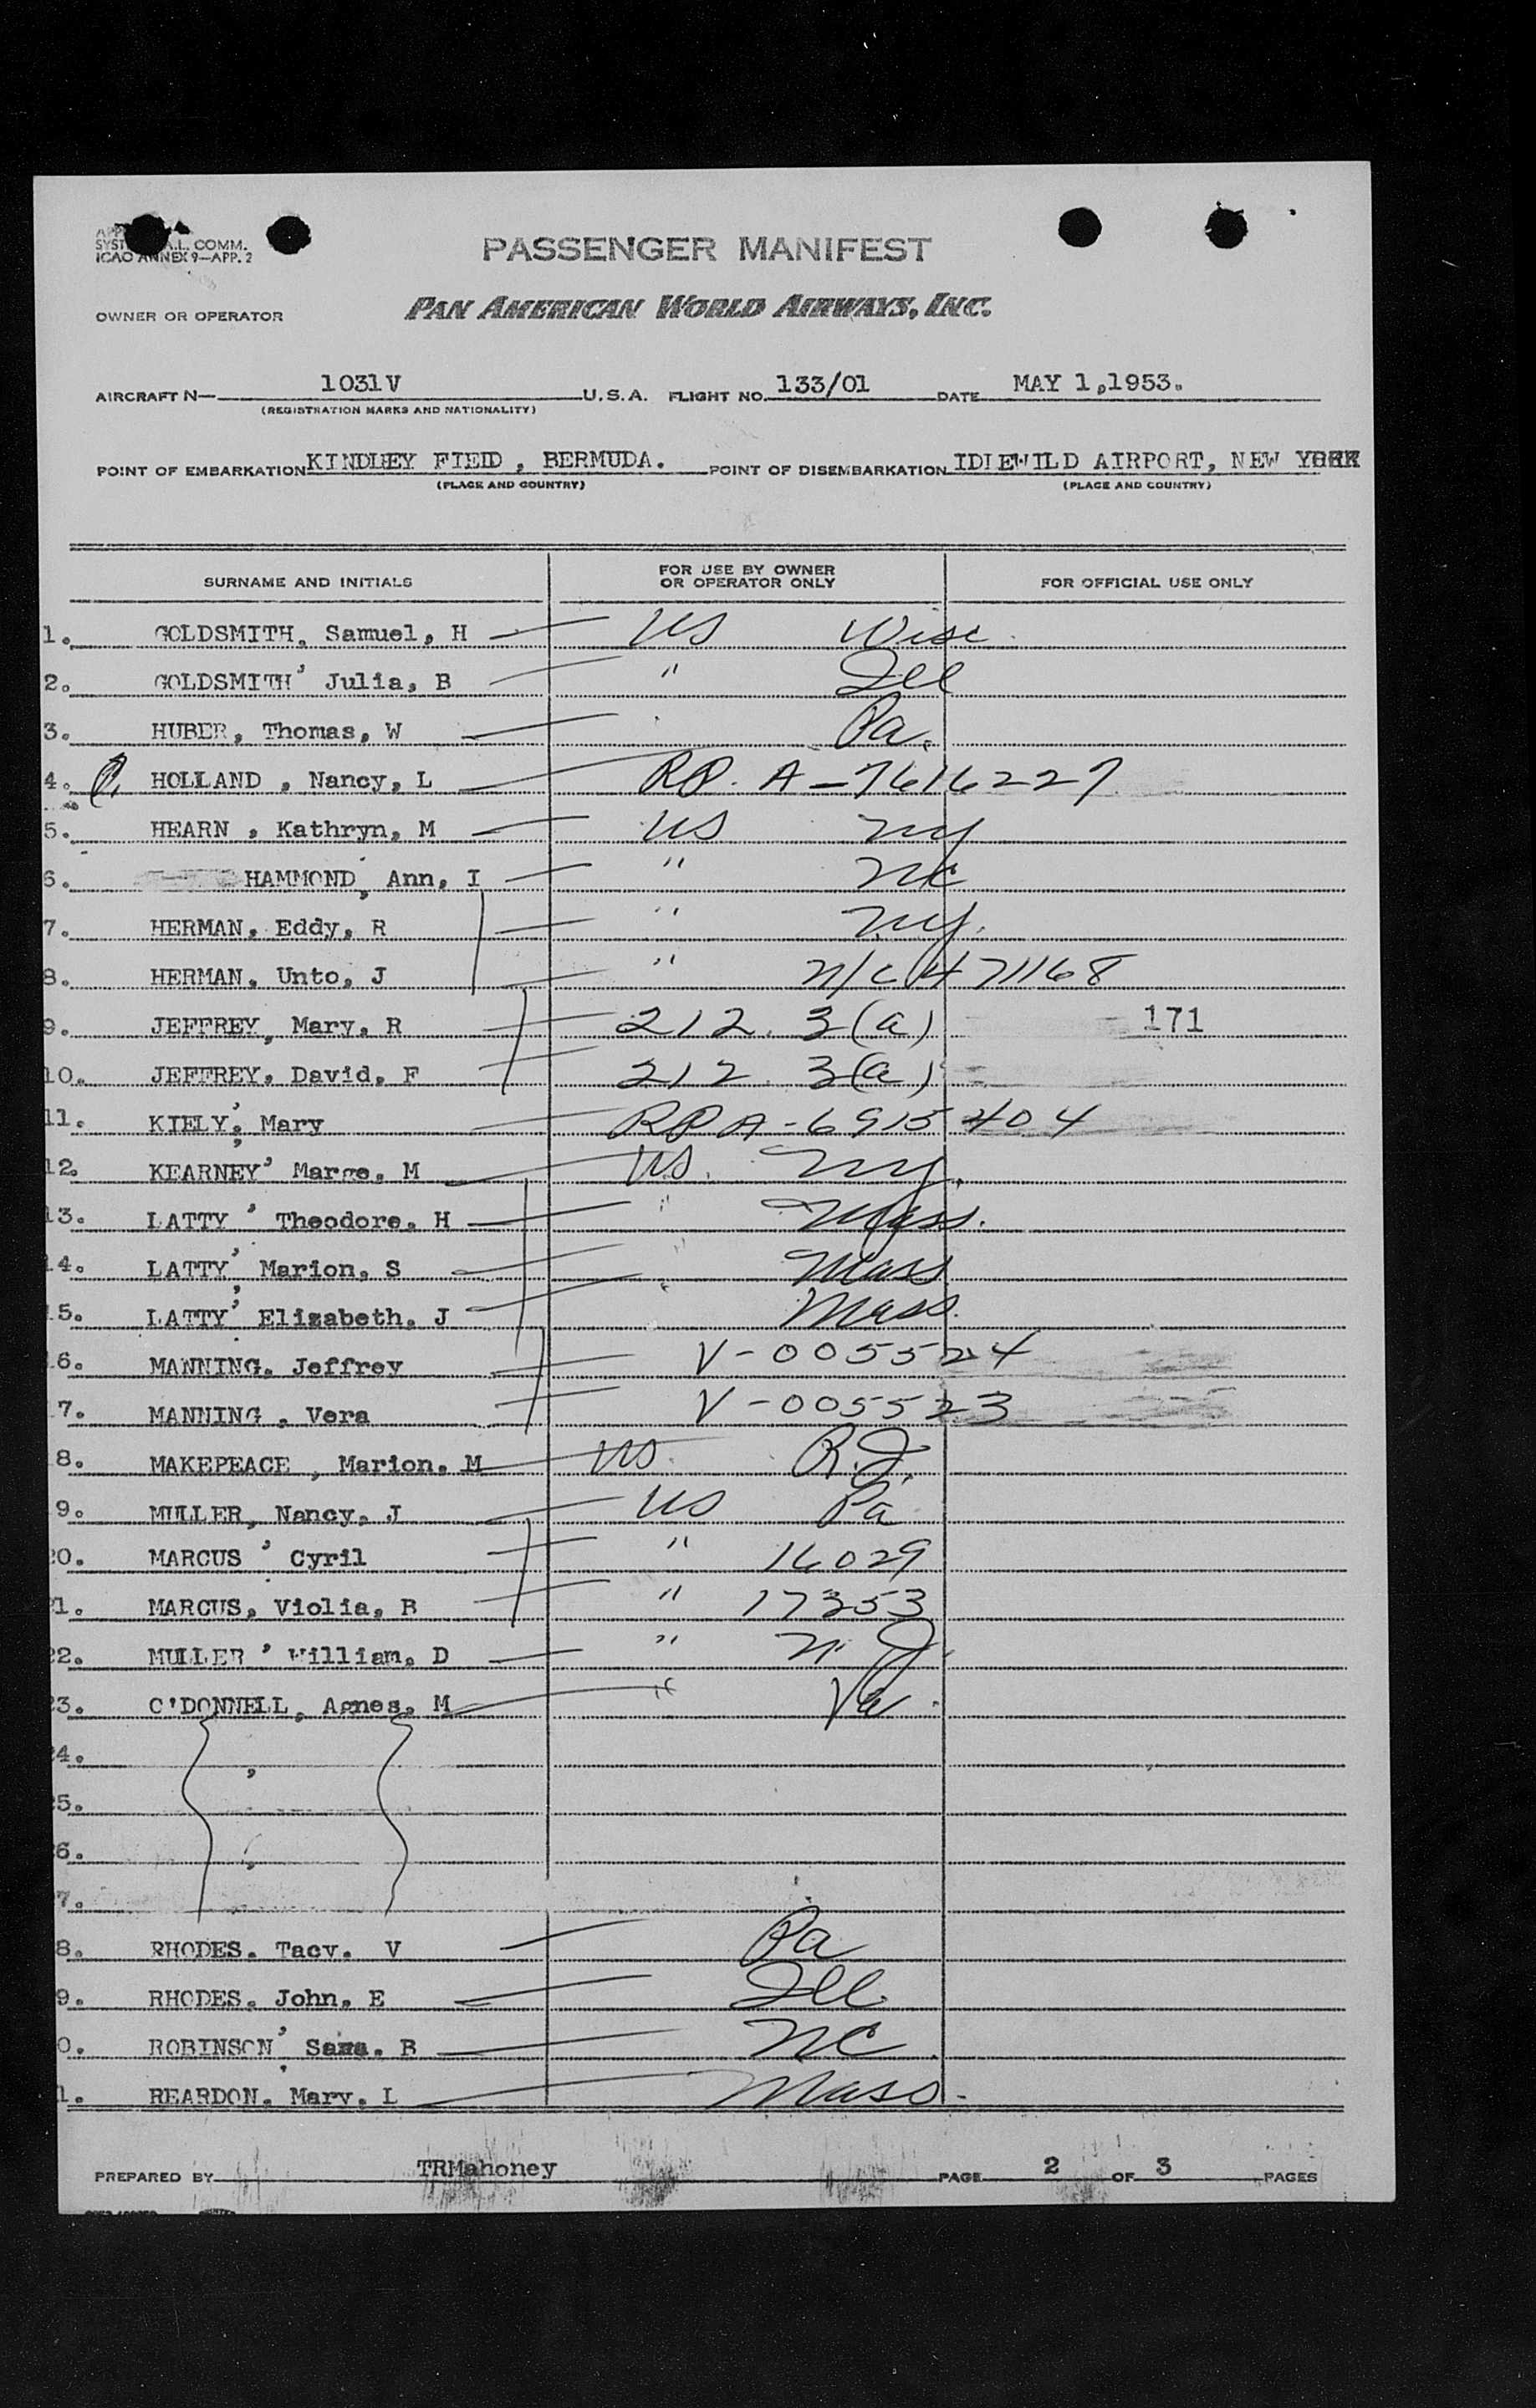 SYST A.L. COMM.
ICAO ANNEX 9—APP. 2
PASSENGER MANIFEST
OWNER OR OPERATOR PAN AMERICAN WORLD AIRWAYS, INC.
AIRCRAFT N— 1031V U.S.A. FLIGHT NO. 133/01 DATE MAY 1,1953.
(REGISTRATION MARKS AND NATIONALITY)
POINT OF EMBARKATION KINDLEY FIELD, BERMUDA. POINT OF DISEMBARKATION IDLEWILD AIRPORT, NEW YORK
(PLACE AND COUNTRY) (PLACE AND COUNTRY)
SURNAME AND INITIALS FOR USE BY OWNER OR OPERATOR ONLY FOR OFFICIAL USE ONLY
1. GOLDSMITH, Samuel, H US Wisc
2. GOLDSMITH, Julia, B " Ill
3. HUBER, Thomas, W Pa.
4. HOLLAND, Nancy, L RP. A-7616227
5. HEARN, Kathryn, M US NY
6. HAMMOND, Ann, I " NC
7. HERMAN, Eddy, R " NY.
8. HERMAN, Unto, J " N/C 1471168
9. JEFFREY, Mary, R 212. 3(a) 171
10. JEFFREY, David, F 212. 3(a)
11. KIELY, Mary RP A-6915404
12. KEARNEY, Marge, M US. NY.
13. LATTY, Theodore, H " Mass.
14. LATTY, Marion, S " Mass
15. LATTY, Elizabeth, J " Mass.
6. MANNING, Jeffrey V-005524
7. MANNING, Vera V-005523
8. MAKEPEACE, Marion, M US. R.I.
9. MULLER, Nancy, J US Pa
20. MARCUS, Cyril " 16029
1. MARCUS, Violia, B " 17353
22. MULLER, William, D " N.J.
23. O'DONNELL, Agnes, M " Va.
24.
5.
6.
7.
8. RHODES. Tacy. V Pa
9. RHODES. John, E Ill.
0. ROBINSON, B NC
1. REARDON. Mary, L Mass.
PREPARED BY TRMahoney PAGE 2 OF 3 PAGES